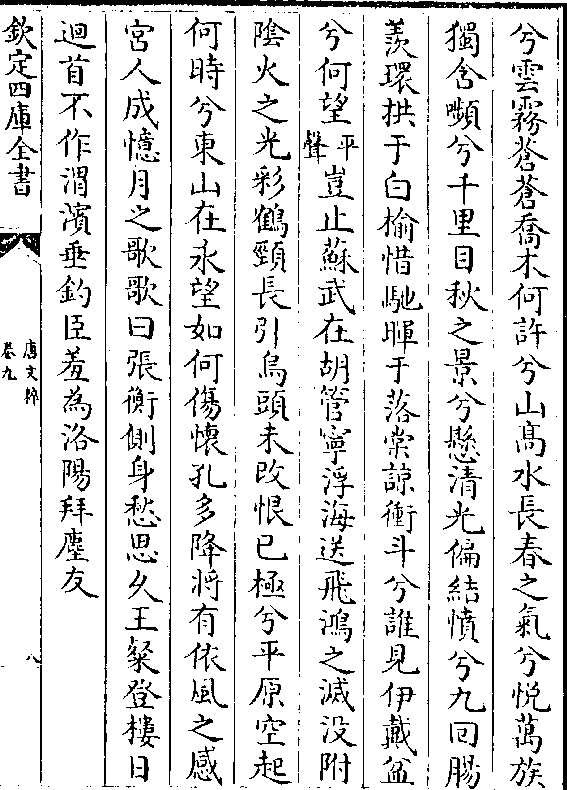 兮雲霧蒼蒼喬木何許兮山髙水長春之氣兮悦萬族
獨含嚬兮千里目秋之景兮懸清光偏結憤兮九回腸
羨環拱于白榆惜馳暉于落棠諒衝斗兮誰見伊戴盆
兮何望平聲豈止蘇武在胡管寧浮海送飛鴻之滅没附
陰火之光彩鶴頸長引烏頭未改恨已極兮平原空起
何時兮東山在永望如何傷懐孔多降將有依風之感
宮人成憶月之歌歌曰張衡側身愁思久王粲登樓日
迴首不作渭濱垂釣臣羞為洛陽拜塵友
欽定四庫全書
唐文粹
卷九
八